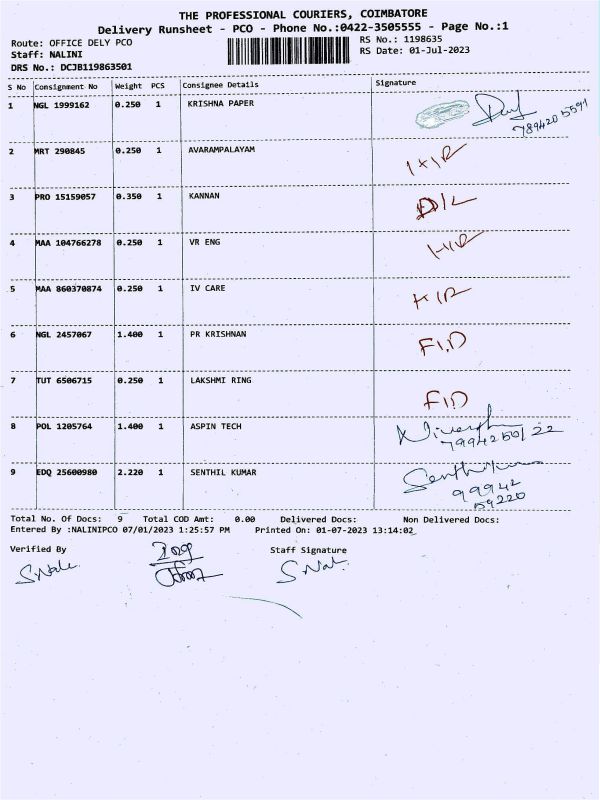 THE PROFESSIONAL COURIERS, COIMBATORE
Delivery Runsheet - PCO - Phone No.:0422-3505555 - Page No.:1
Route: OFFICE DELY PCO RS No.: 1198635
Staff: NALINI RS Date: 01-Jul-2023
DRS No.: DCJB119863501
S No Consignment No Weight PCS Consignee Details Signature
1 NGL 1999162 0.250 1 KRISHNA PAPER
7894205591
2 MRT 290845 0.250 1 AVARAMPALAYAM
3 PRO 15159057 0.350 1 KANNAN D/L
4 MAA 104766278 0.250 1 VR ENG
5 MAA 860370874 0.250 1 IV CARE
6 NGL 2457067 1.400 1 PR KRISHNAN F1D
7 TUT 6506715 0.250 1 LAKSHMI RING F1D
8 POL 1205764 1.400 1 ASPIN TECH
9 EDQ 25600980 2.220 1 SENTHIL KUMAR
99942
59220
Total No. Of Docs: 9 Total COD Amt: 0.00 Delivered Docs: Non Delivered Docs:
Entered By :NALINIPCO 07/01/2023 1:25:57 PM Printed On: 01-07-2023 13:14:02
Verified By Staff Signature